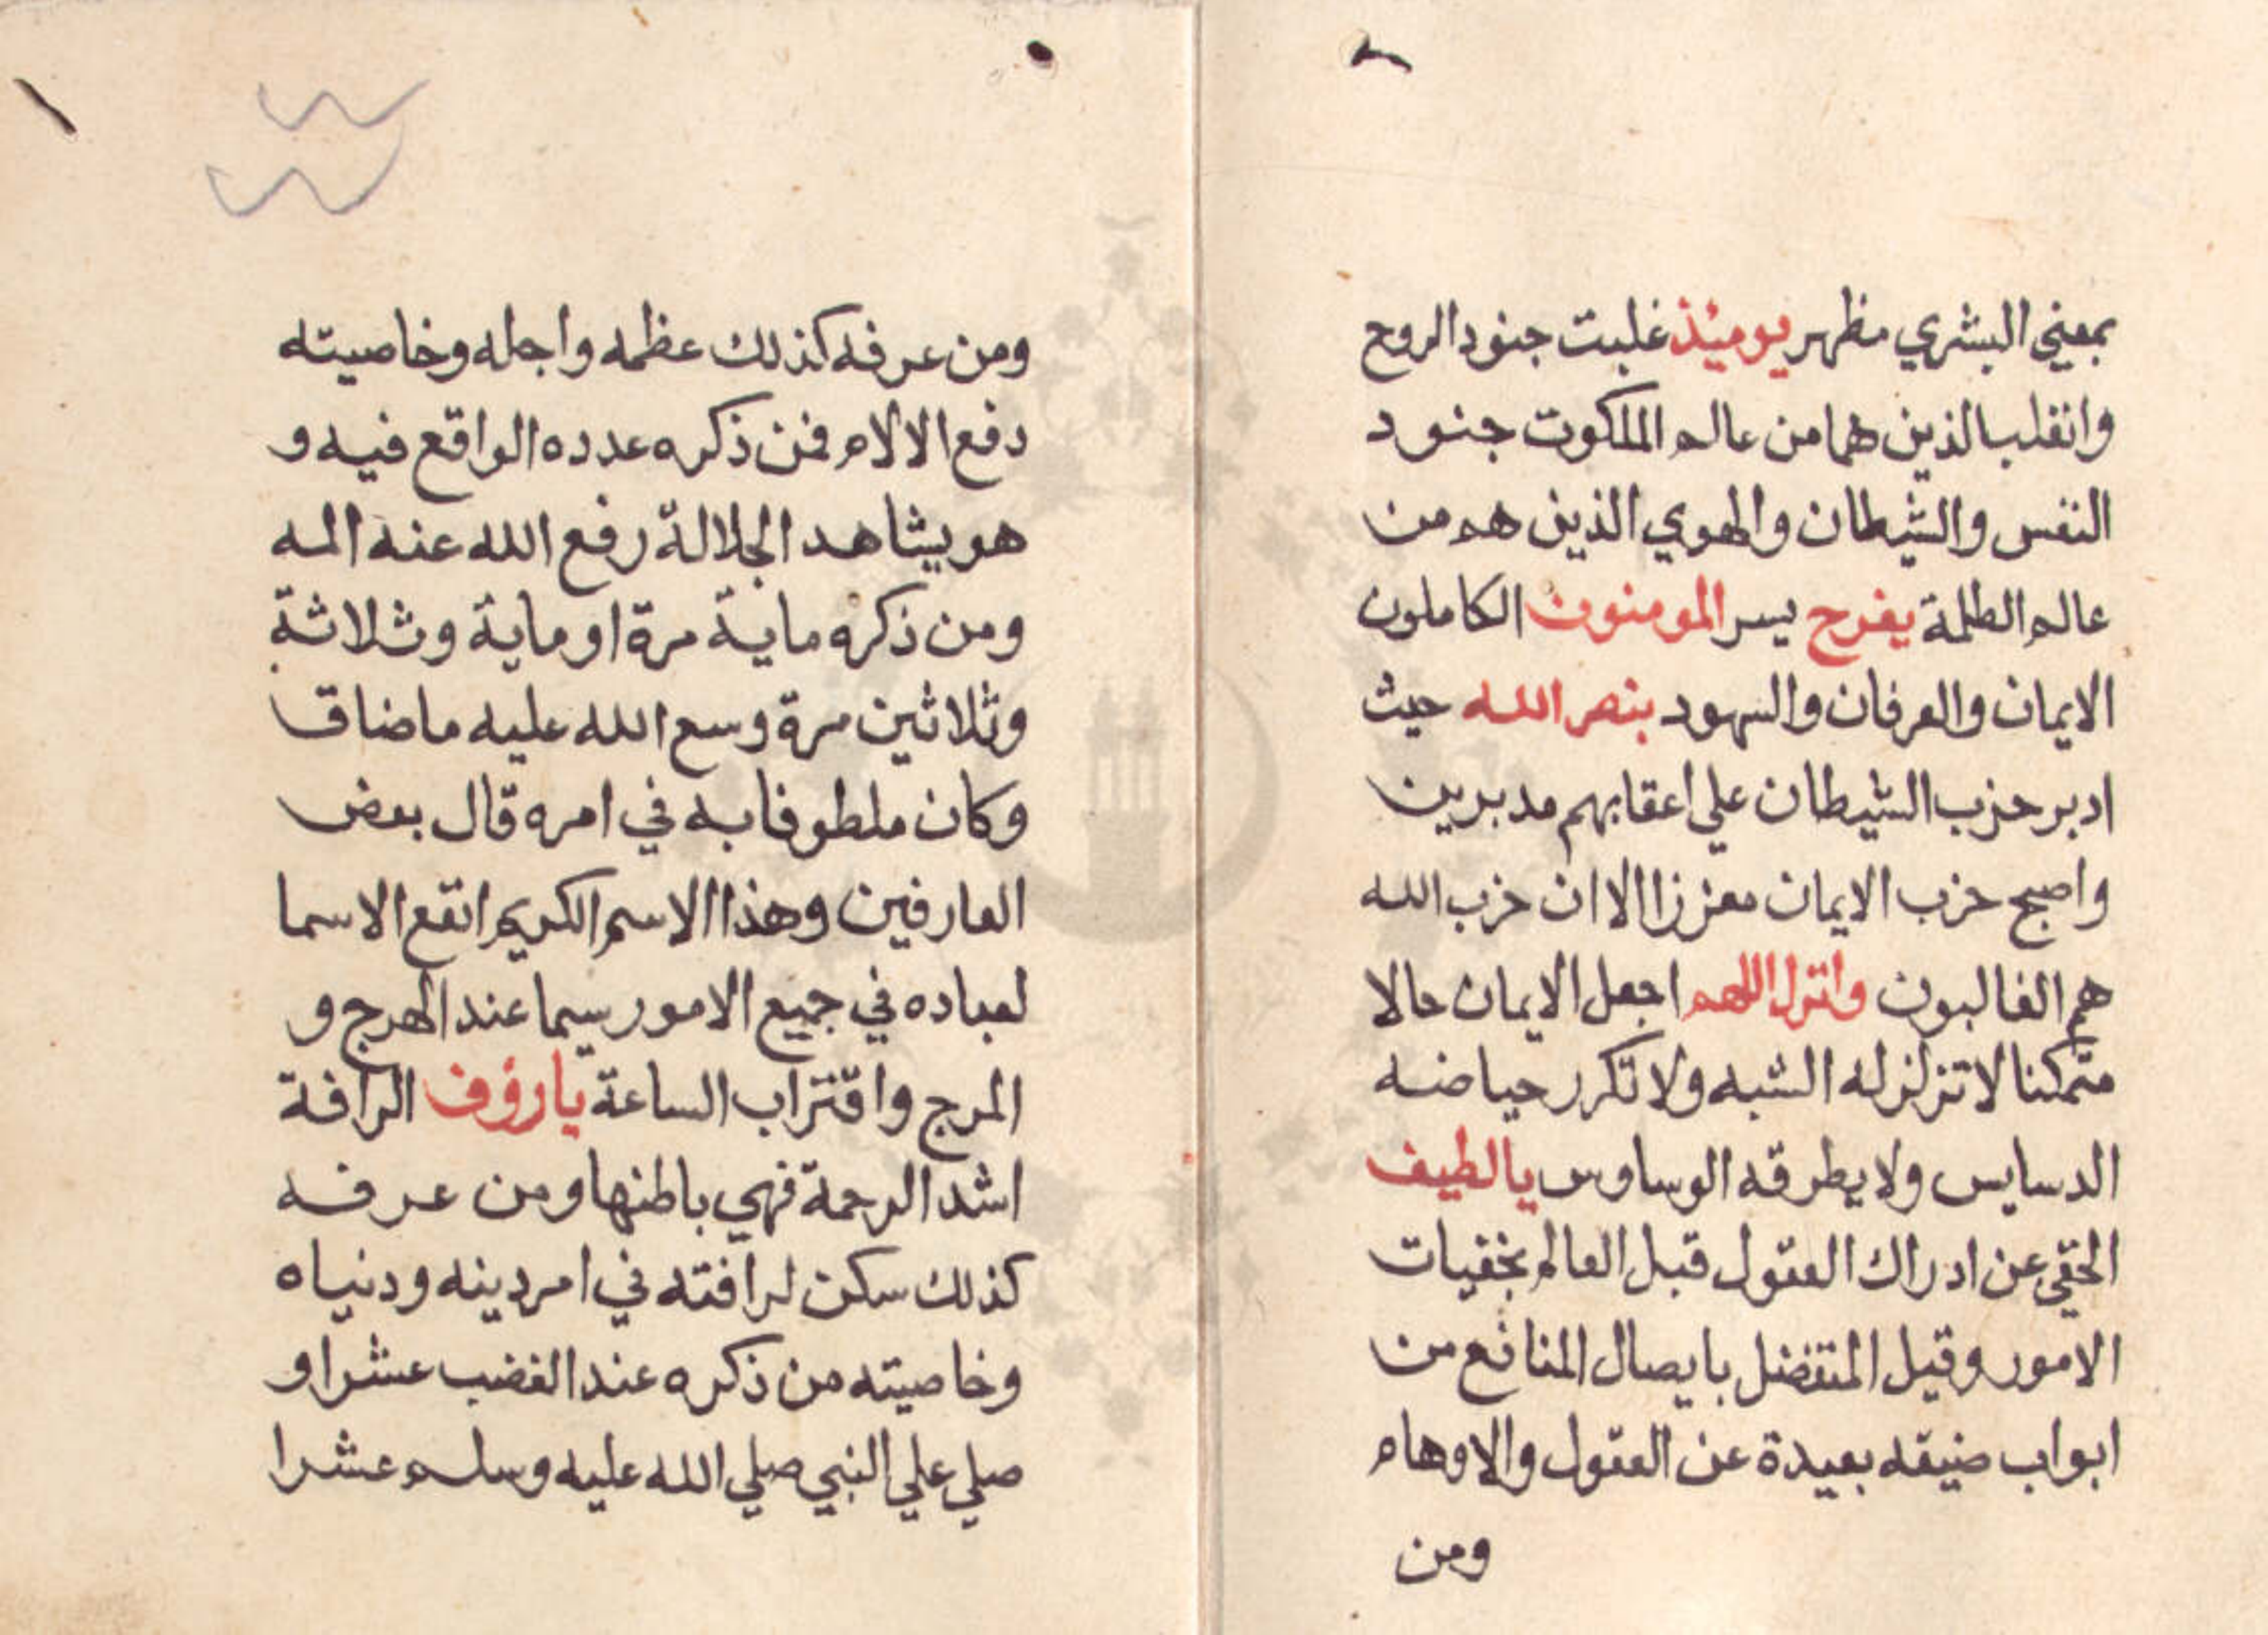 بمعني البشري مظهر يوميذ غلبت جنود الروح
وانقلب الذين هما من عالم الملكوت جنود
النفس والشيطان والهوي الذين هم من
عالم الظلمة يفرح يسر المومنون الكاملون
الايمان والعرفان والسهود بنصر الله حيث
ادبر حزب الشيطان علي اعقابهم مدبرين
واصبح حزب الايمان معززا الا ان حزب الله
هم الغالبون وانزل اللهم اجعل الايمان حالا
متمكنا لا تزلزله الشبه ولا تكرر حياضه
الدسايس ولا يطرقه الوساوس يا لطيف
الخفي عن ادراك العقول قبل العالم بخفيات
الامور وقيل المتفضل بايصال المنافع من
ابواب ضيقه بعيدة عن العقول والاوهام
ومن
ومن عرفه كذلك عظمه واجله وخاصيته
دفع الالام فمن ذكره عدده الواقع فيه و
هو يشاهد الجلالة رفع الله عنه المه
ومن ذكره ماية مرة او ماية وثلاثة
وثلاثين مرة وسع الله عليه ما ضاق
وكان ملطوفا به في امره قال بعض
العارفين وهذا الاسم الكريم انفع الاسما
لعباده في جميع الامور سيما عند الهرج و
المرج واقتراب الساعة يا رؤف الرافة
اشد الرحمة فهي باطنها ومن عرفه
كذلك سكن لرافته في امر دينه ودنياه
وخاصيته من ذكره عند الغضب عشرا و
صلي علي النبي صلي الله عليه وسلم عشرا